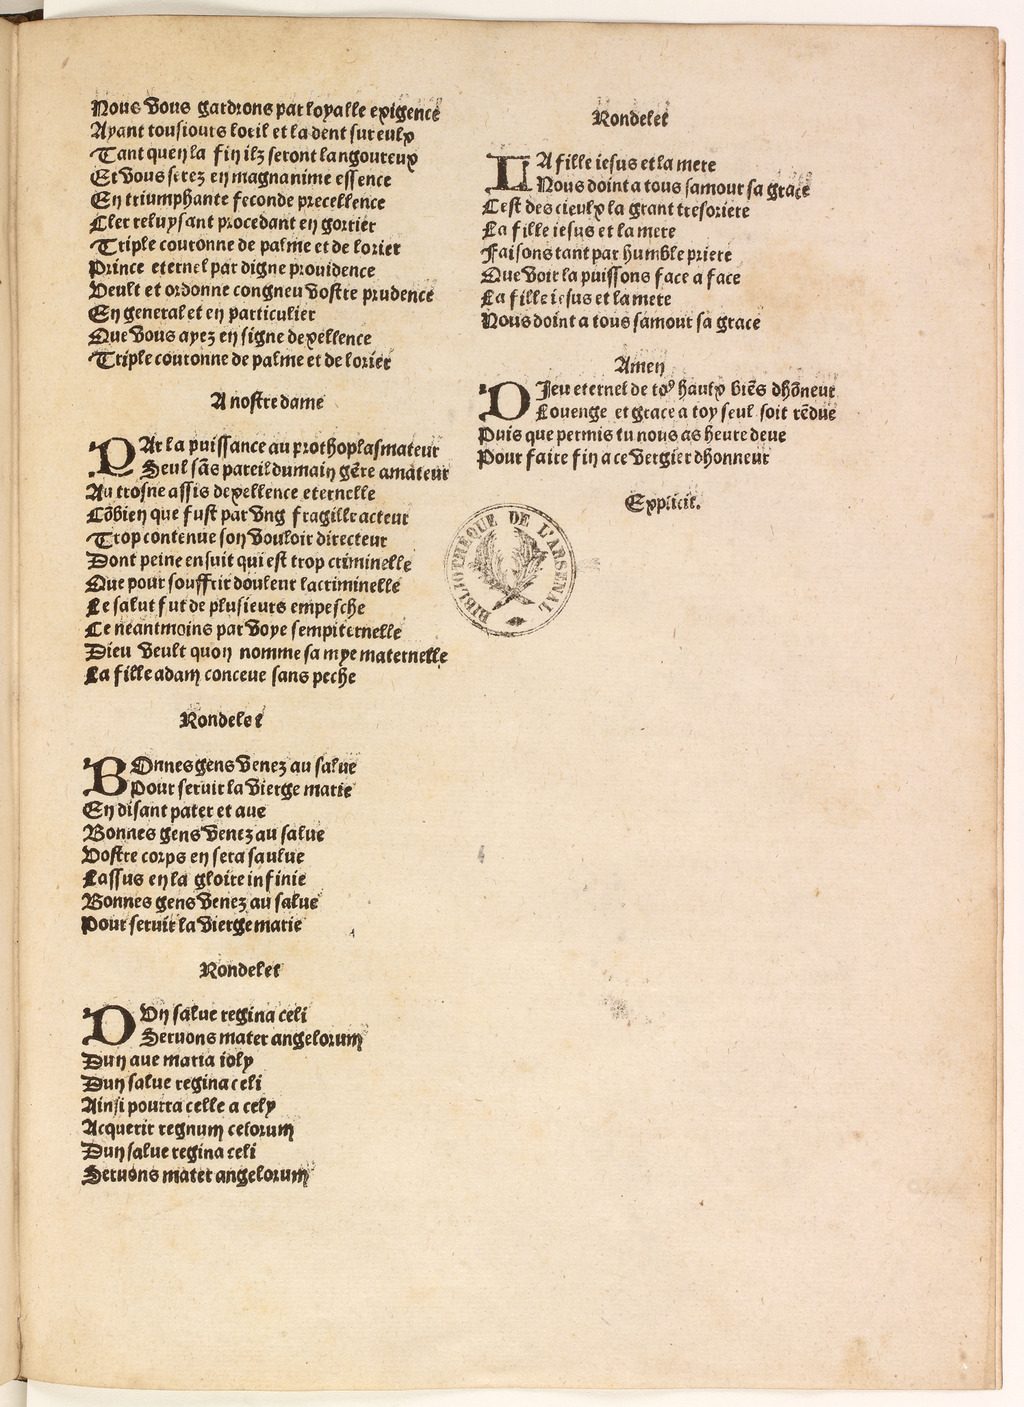 Nous vous gardrons par loyalle exigence
Ayant tousiours lotil et la dent sur eulx
Tant que en la fin ilz seront langoureux
Et vous serez en magnanime essence
En triumphante feconde precellence
Cler reluysant procedant en gorrier
Triple couronne de palme et de lorier
Prince eternel par digne prouidence
Veult et ordonne congneu vostre prudence
En general et en particulier
Que vous ayez en signe dexellence
Triple couronne de palme et de lorier
A nostre dame
PAr la puissance au prothoplasmateur
Seul sãs pareil dumain gẽre amateur
Au trosne assis dexellence eternelle
Cõbien que fust par vng fragille acteur
Trop contenue son vouloir directeur
Dont peine ensuit qui est trop criminelle
Que pour souffrir douleur lacriminelle
Le salut fut de plusieurs empesche
Ce neantmoins par voye sempiternelle
Dieu veult quon nomme sa mye maternelle
La fille adam conceue sans peche
Rondelet
BOnnes gens venez au salue
Pour seruir la vierge marie
En disant pater et aue
Bonnes gens venez au salue
Vostre corps en sera saulue
Lassus en la gloire infinie
Bonnes gens venez au salue
Pour seruir la vierge marie
Rondelet
DVn salue regina celi
Seruons mater angelorum
Dun aue maria ioly
Dun salue regina celi
Ainsi pourra celle a cely
Acquerir regnum celorum
Dun salue regina celi
Seruons mater angelorum
Rondelet
LA fille iesus et la mere
Nous doint a tous samour sa grace
Cest des cieulx la grant tresoriere
La fille iesus et la mere
Faisons tant par humble priere
Que voir la puissons face a face
La fille iesus et la mere
Nous doint a tous samour sa grace
Amen
DIeu eternel de toꝰ haulx biẽs dhõneur
Louenge et grace a toy seul soit rẽdue
Puis que permis tu nous as heure deue
Pour faire fin a ce vergier dhonneur
Explicit.
BIBLIOTHÈQUE DE L'ARSENAL